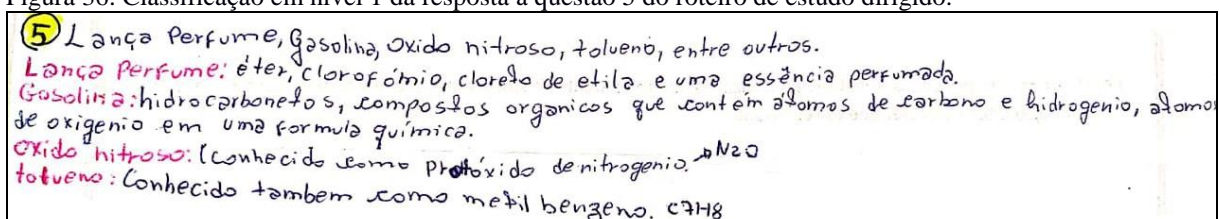 Figura 36: Classificação em nível 1 da resposta à questão 5 do roteiro de estudo dirigido.
5 Lança Perfume, Gasolina, Oxido nitroso, tolueno, entre outros.
Lança Perfume: éter, clorofómio, cloreto de etila e uma essência perfumada.
Gasolina: hidrocarbonetos, compostos organicos que contém átomos de carbono e hidrogenio, atomos
de oxigenio em uma formula química.
Oxido nitroso: (conhecido como protóxido de nitrogenio. → N2O
tolueno: Conhecido tambem como metil benzeno. C7H8